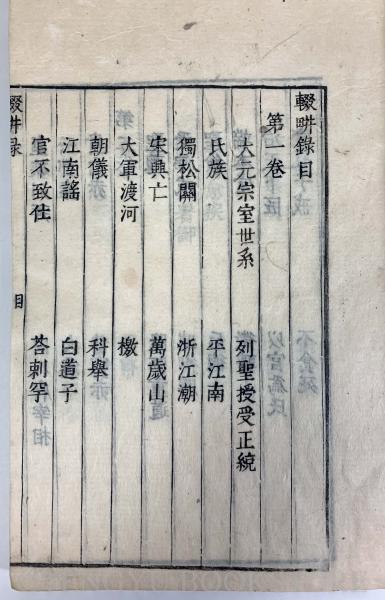 輟畊錄目
第一卷
大元宗室世系 列聖授受正統
氏族 平江南
獨松關 浙江潮
宋興亡 萬歲山
大軍渡河 檄
朝儀 科舉
江南謠 白道子
官不致仕 荅剌罕
輟畊錄 目